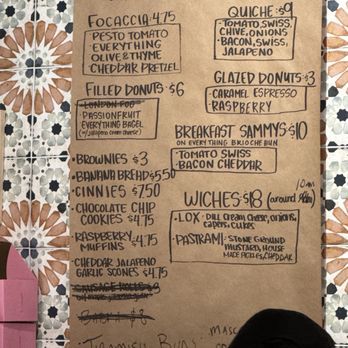 FOCACCIA 4.75
PESTO TOMATO
EVERYTHING
OLIVE & THYME
CHEDDAR PRETZEL
FILLED DONUTS $6
LONDON FOG
PASSIONFRUIT
EVERYTHING BAGEL
(w/ jalapeño cream cheese)
• BROWNIES $3
• BANANA BREAD $5.50
• CINNIES $7.50
• CHOCOLATE CHIP
COOKIES $4.75
• RASPBERRY
MUFFINS $4.75
• CHEDDAR JALAPENO
GARLIC SCONES $4.75
SAUSAGE ROLLS $8
QUICHE $9
• TOMATO, SWISS,
CHIVE, ONIONS
• BACON, SWISS,
JALAPENO
GLAZED DONUTS $3
• CARAMEL ESPRESSO
• RASPBERRY
BREAKFAST SAMMYS $10
ON EVERYTHING BRIOCHE BUN
• TOMATO SWISS
• BACON CHEDDAR
10am
WICHES $18 (around
• LOX: DILL CREAM CHEESE, ONIONS,
CAPERS, CUKES
• PASTRAMI: STONE GROUND
MUSTARD, HOUSE
MADE PICKLES, CHEDDAR
BUNS
MASC